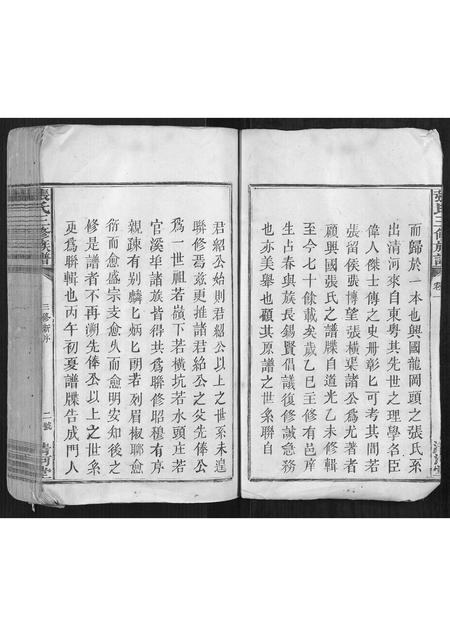 張氏三修族譜
卷一
而歸於一本也興國龍岡頭之張氏系
出清河來自東粵其先世之理學名臣
偉人傑士傳之史冊彰匕可考其間若
張留侯張博望張橫渠諸公為尤著者
顧興國張氏之譜牒自道光乙未修輯
至今七十餘載矣歲乙巳主修有邑庠
生占春與族長錫賢倡議復修誠急務
也亦美舉也顧其原譜之世系聯自
君紹公始則君紹公以上之世系未遑
聯修焉茲更推諸君紹公之父先俸公
為一世祖若嶺下若橫坑若水頭庄若
官溪埠諸族皆得共為聯修昭穆有序
親疎有別麟匕炳匕朗若列眉椒聊愈
衍而愈盛宗支愈久而愈明安知後之
修是譜者不再溯先俸公以上之世系
更為聯輯也丙午初夏譜牒告成門人
張氏三修族譜
三修新序
二號
清河堂